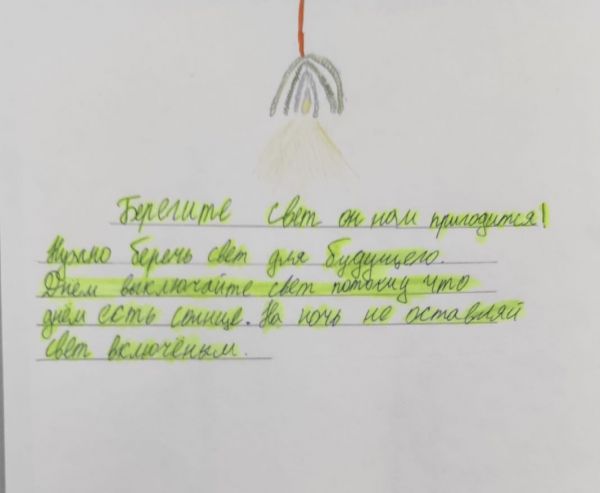 Берегите свет он нам пригодится!
Нужно беречь свет для будущего.
Днём выключайте свет потому что
днём есть слнце. На ночь не оставляй
свет включёным.